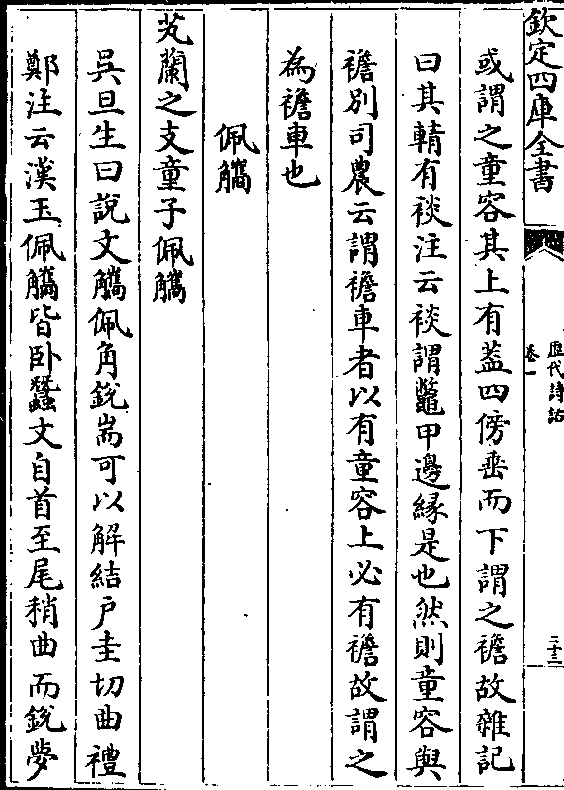 欽定四庫全書
歷代詩話
卷一
二十三
或謂之童容其上有葢四傍垂而下謂之襜故雜記
曰其輤有裧注云裧謂鼈甲邊縁是也然則童容與
襜别司農云謂襜車者以有童容上必有襜故謂之
為襜車也
佩觿
芄蘭之支童子佩觿
吳旦生曰説文觿佩角鋭耑可以解結户圭切曲禮
鄭注云漢玉佩觿皆卧蠶文自首至尾稍曲而鋭夢